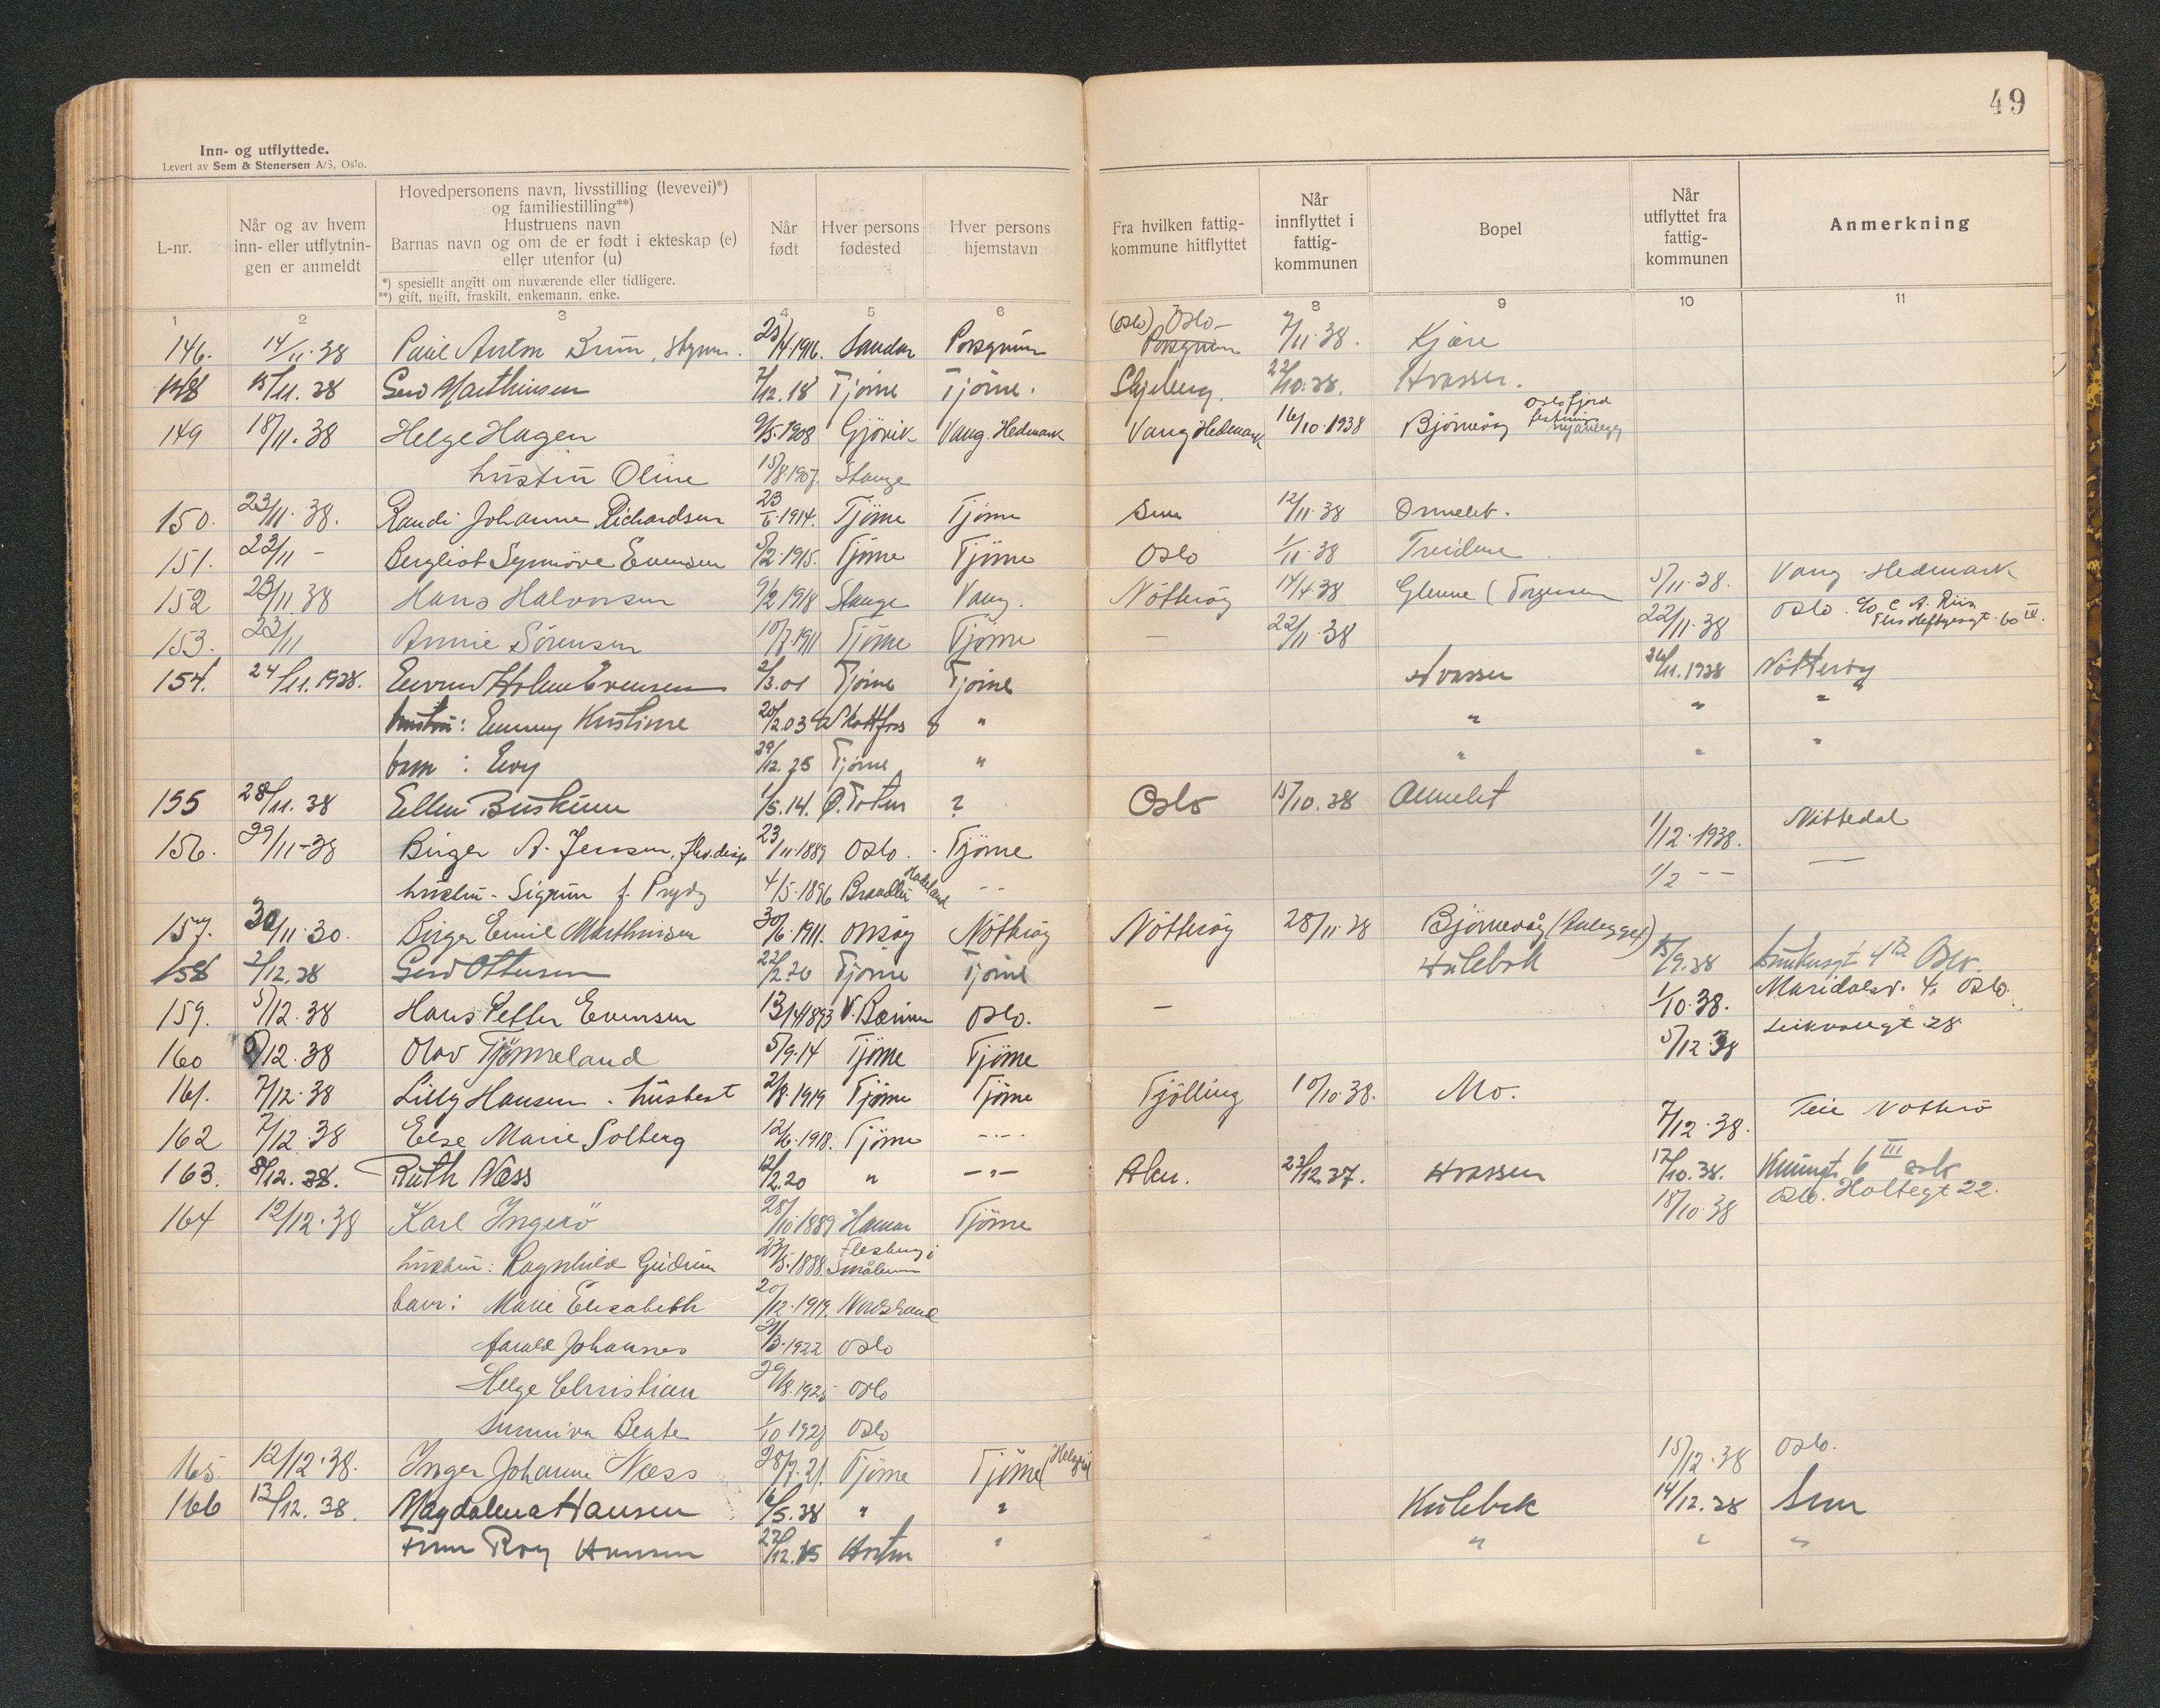 49
Inn- og utflyttede.
Levert av Sem & Stenersen A/S, Oslo.
L-nr.
Når og av hvem inn- eller utflytnin- gen er anmeldt
Hovedpersonens navn, livsstilling (levevei)*)
og familiestilling**)
Hustruens navn
Barnas navn og om de er født i ekteskap (e)
eller utenfor (u)
*) spesiellt angitt om nuværende eller tidligere.
**) gift, ugift, fraskilt, enkemann, enke.
Når født
Hver persons fødested
Hver persons hjemstavn
Fra hvilken fattig- kommune hitflyttet
Når innflyttet i fattig- kommunen
Bopel
Når utflyttet fra fattig- kommunen
Anmerkning
1 2 3 4 5 6 8 9 10 11
146. 14/11.38 Paul Anton Brun, styrm. 23/4.1916. Sandar Porsgrunn (Oslo) Oslo - Porsgrunn 7/11.38. Kjære
148 15/11.38 Gerd Marthinsen 7/12.18 Tjöme Tjöme. Skjeberg. 22/10.38. Hvasser.
149 18/11.38 Helge Hagen 9/5.1908 Gjövik Vang. Hedmark Vang Hedmark 16/10.1938 Björnevåg Oslofjord
hustru Oline 15/8.1907. Stange
150. 23/11.38. Randi Johanne Richardsen 23/6.1914. Tjöme Tjöme Sem 12/11.38 Ormelet.
151. 23/11 - Bergliot Synnöve Evensen 5/2.1915. Tjöme Tjöme Oslo 1/11.38 Treidene.
152 23/11.38 Hans Halvorsen 9/2 1918 Stange Vang. Nötteröy 14/4.38 Glenne (Torgersen 5/11.38. Vang Hedmark
153. 23/11 Annie Sörensen 10/7.1911 Tjöme Tjöme — 22/11.38 22/11.38 Oslo. c/o C A. Riis Ths Heftyesgt. 60 IV.
154. 24/11.1938. Holm Evensen 2/3.01 Tjöme Tjöme Hvasser 26/11.1938 Nötteröy
hustru: Emmy Kristine 20/2.03 Skotfoss " " " "
barn: Evy 29/12.25 Tjöme " " " "
155 28/11.38 Ellen Buskerun 1/5.14. Ø. Toten ? Oslo 15/10.38 Ormelet
156. 29/11-38 Birger A. Jensen, 23/11.1889 Oslo. Tjöme 1/12.1938. Nittedal
hustru - Sigrun f. Prydz 4/5.1896 Brandbu Hadeland -- 1/2 -- —
157. 30/11.30. Birger Emil Marthinsen 30/6.1911. Onsöy Nötteröy Nötteröy 28/11.38 Björnevåg (Anlegget)
158 2/12.38 Gerd Ottersen 22/2.20 Tjöme Tjöme Kulebek 15/9.38 Oslo.
159. 5/12.38 Hans Petter Evensen 13/4 1893 V. Bærum Oslo. — 1/10.38. Maridalsv. 4. Oslo.
160 5/12.38 Olav Tjönneland 5/9.14 Tjöme Tjöme 5/12 38 28
161. 7/12.38 Lilly Hansen. husbest 2/8.1919 Tjöme Tjöme Tjölling 10/10.38. Mo.
162 7/12.38 Else Marie Solberg 12/6.1918. Tjöme -.-. 7/12.38. Teie Nötterö
163. 8/12.38. Ruth Næss 12/2.20 " -"- Aker. 23/12.37. Hvasser 17/10.38. 6 III Oslo
164 12/12.38 Karl Ingerö 28/10.1889 Hamar Tjöme 18/10.38 Oslo. Holtegt 22.
hustru: Ragnhild Gudrun 23/5.1888 i Smålenene
barn: Marie Elisabeth 20/12.1919. Nordstrand
Harald Johannes 21/3.1922 Oslo
Helge Christian 29/8.1925 Oslo
Sunniva Beate 1/10 1927 Oslo
165. 12/12.38. Inger Johanne Næss 28/7.21. Tjöme Tjöme 15/12.38 Oslo.
166 13/12.38. Magdalena Hansen 6/5.38 " " Kulebek 14/12.38 Sem
Finn Roy Hansen 22/12.15 Horten " " " "